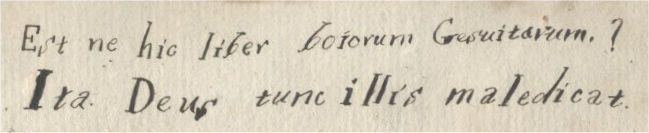 Est ne hic liber boiorum Gesuitarum. ?
Ita. Deus tunc illis maledicat.